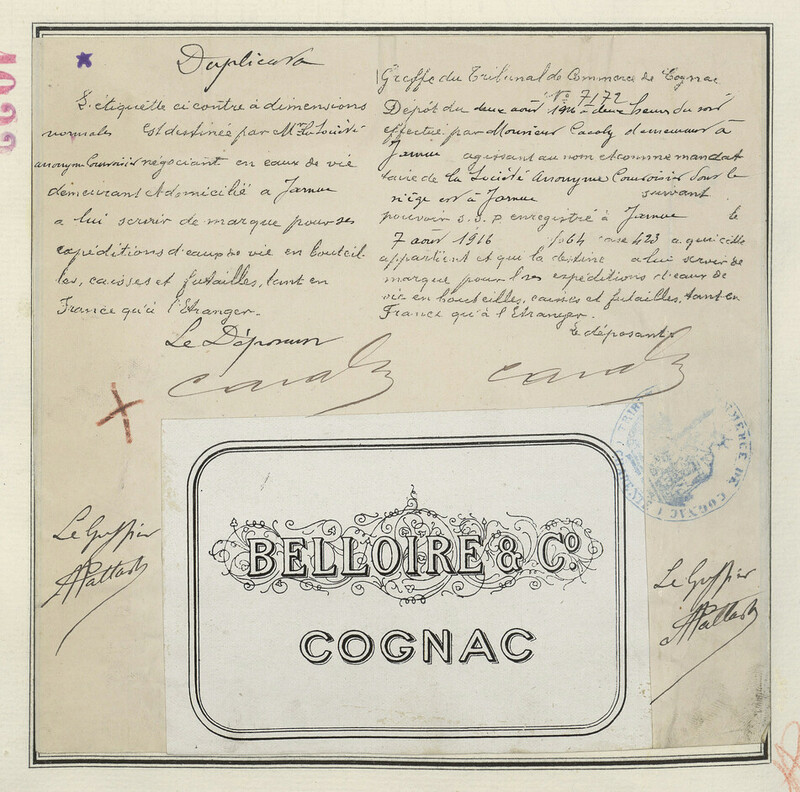 Duplicata
L'étiquette ci contre à dimensions
normales est destinée par Mr la Société
anonyme Courvoisier négociant en eaux de vie
demeurant et domicilié a Jarnac
a lui servir de marque pour ses
expéditions d'eaux de vie en bouteil-
les, caisses et futailles, tant en
France qu'à l'Etranger.
Le Déposant
Greffe du Tribunal de Commerce de Cognac
No 7172
Dépôt du deux août 1916 à deux heures du soir
effectué par Monsieur demeurant à
Jarnac agissant au nom et comme mandat
taire de la Société Anonyme Courvoisier dont le
siège est à Jarnac suivant
pouvoir s.s.p enregistré à Jarnac le
7 août 1916 fo 64 case 423 a qui elle
appartient et qui la destine a lui servir de
marque pour ses expéditions d'eaux de
vie en bouteilles, caisses et futailles, tant en
France qu'à l'Etranger.
Le déposant
Le Greffier
BELLOIRE & Co
COGNAC
Le Greffier
COMMERCE DE COGNAC